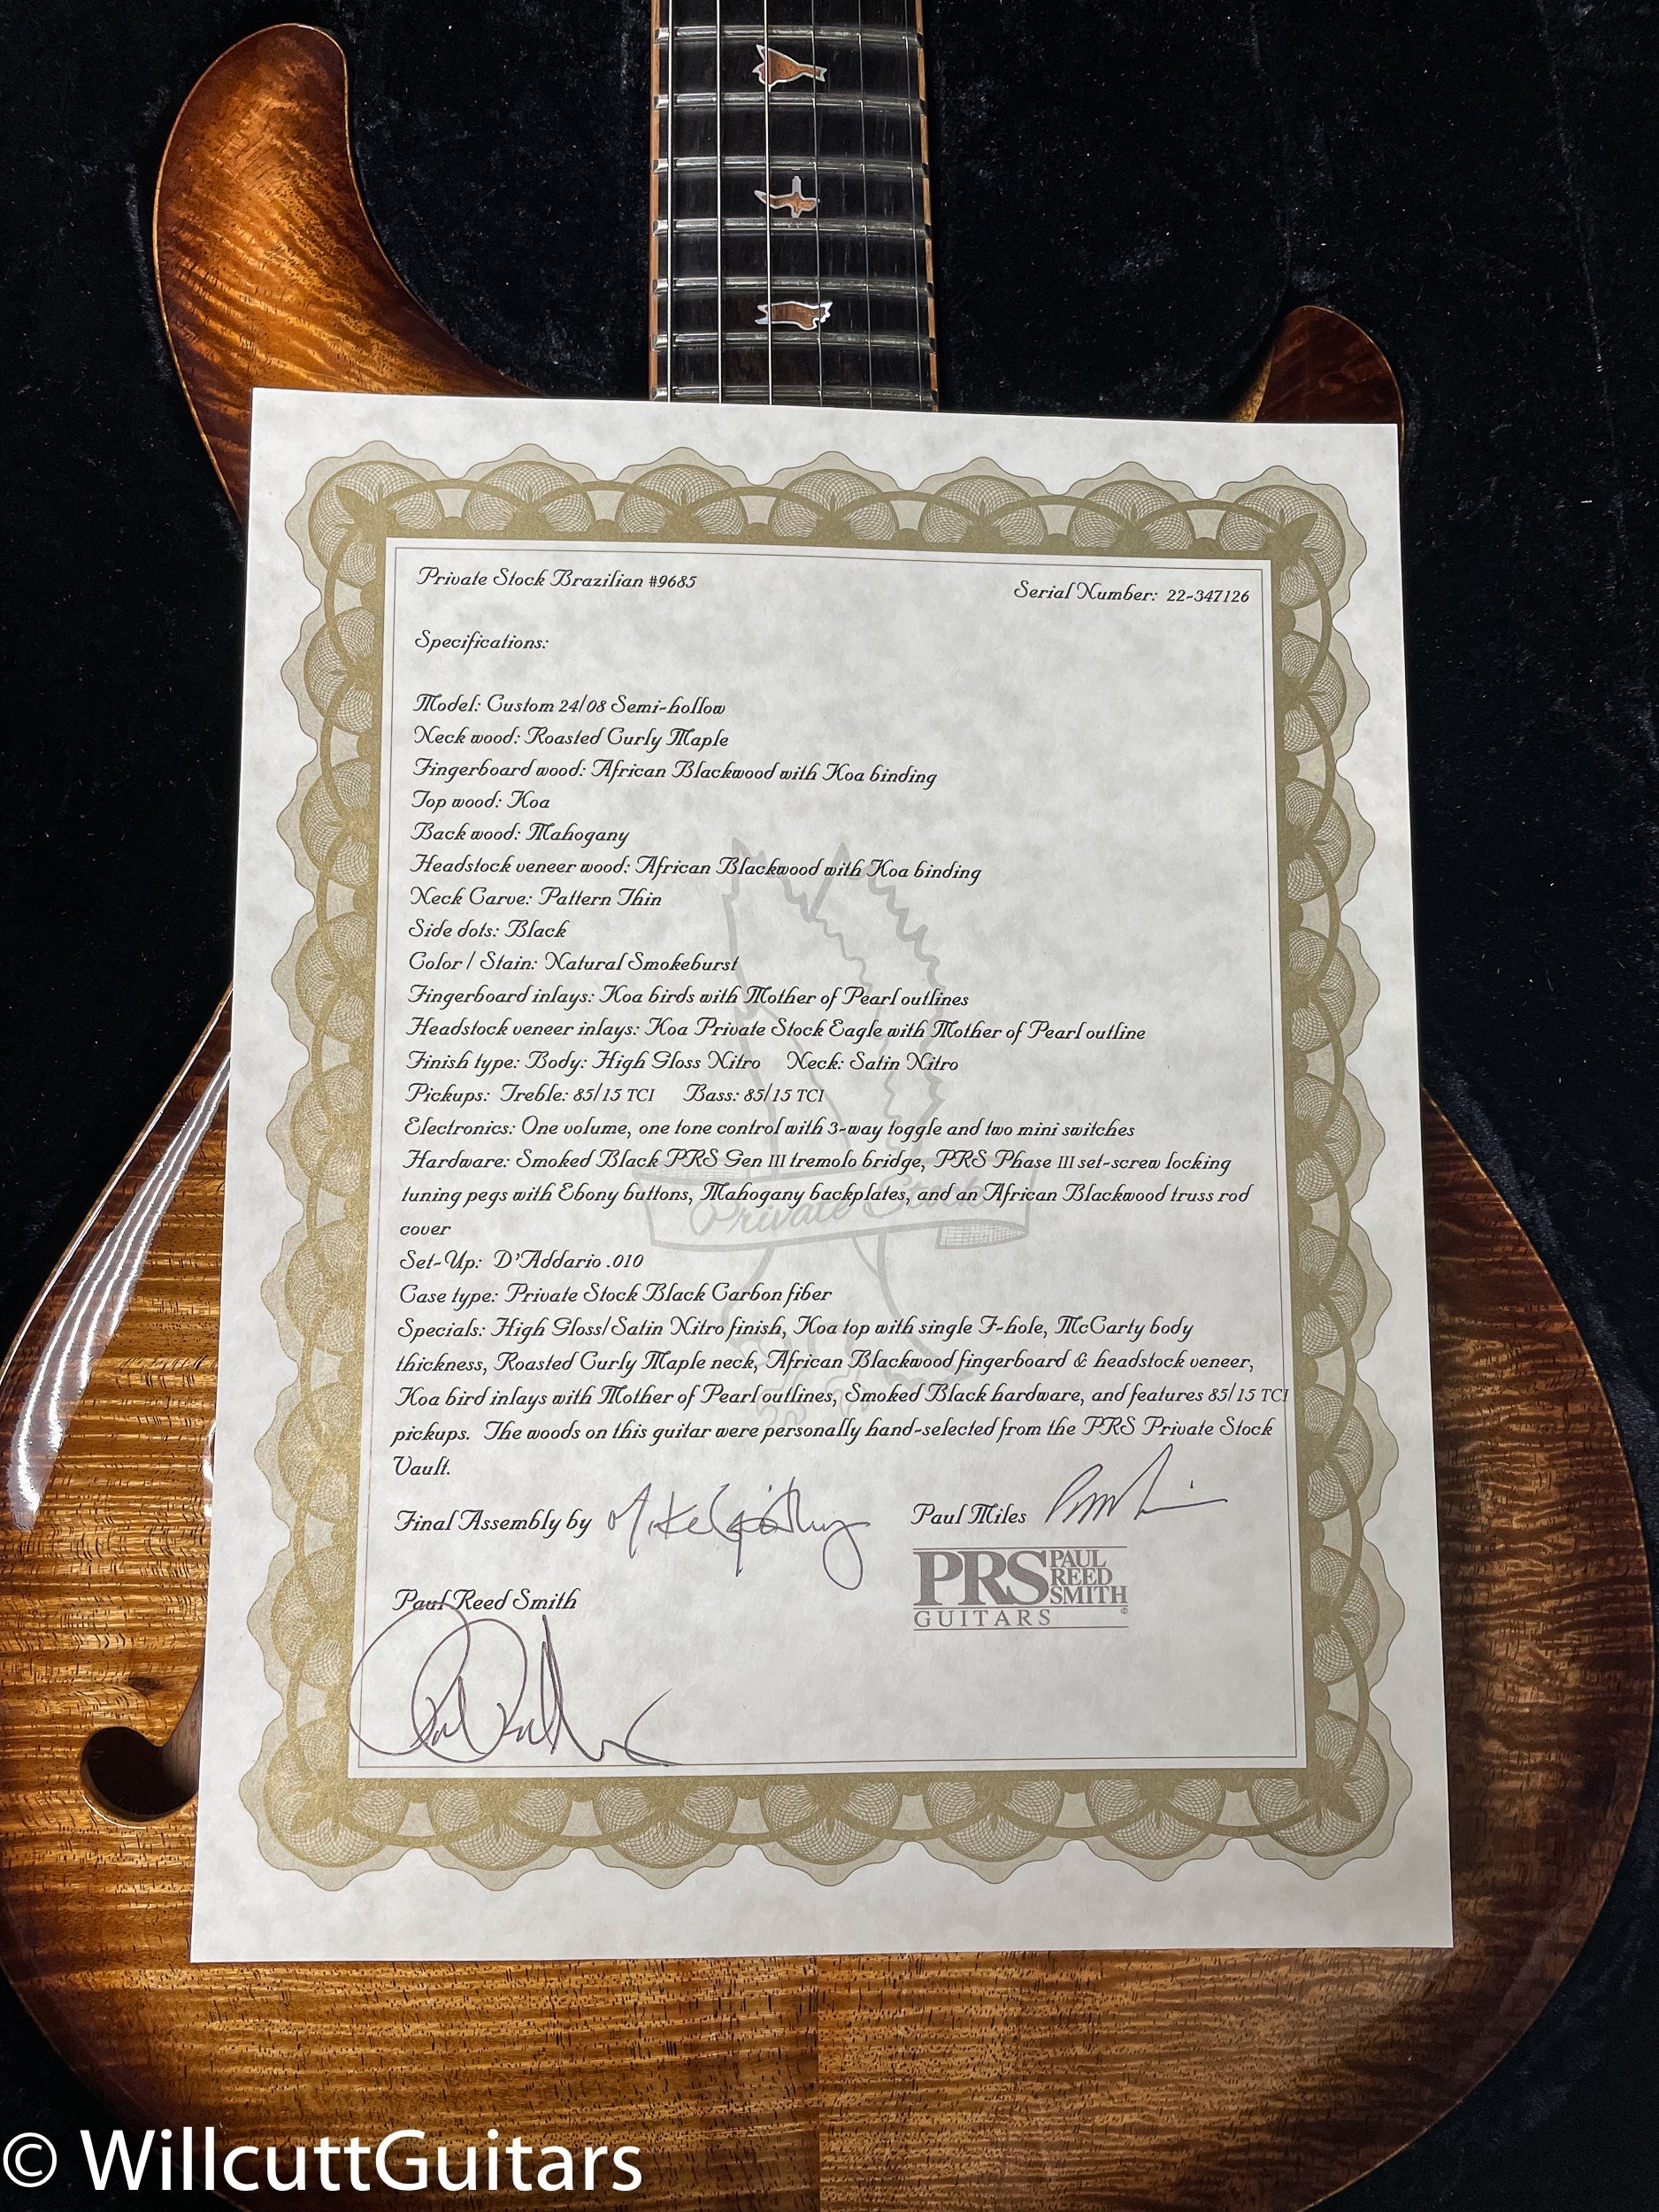 Private Stock Brazilian #9685
Serial Number: 22-347126
Specifications:
Model: Custom 24/08 Semi-hollow
Neck wood: Roasted Curly Maple
Fingerboard wood: African Blackwood with Koa binding
Top wood: Koa
Back wood: Mahogany
Headstock veneer wood: African Blackwood with Koa binding
Neck Carve: Pattern Thin
Side dots: Black
Color / Stain: Natural Smokeburst
Fingerboard inlays: Koa birds with Mother of Pearl outlines
Headstock veneer inlays: Koa Private Stock Eagle with Mother of Pearl outline
Finish type: Body: High Gloss Nitro Neck: Satin Nitro
Pickups: Treble: 85/15 TCI Bass: 85/15 TCI
Electronics: One volume, one tone control with 3-way toggle and two mini switches
Hardware: Smoked Black PRS Gen III tremolo bridge, PRS Phase III set-screw locking
tuning pegs with Ebony buttons, Mahogany backplates, and an African Blackwood truss rod
cover
Private Stock
Set-Up: D'Addario .010
Case type: Private Stock Black Carbon fiber
Specials: High Gloss/Satin Nitro finish, Koa top with single F-hole, McCarty body
thickness, Roasted Curly Maple neck, African Blackwood fingerboard & headstock veneer,
Koa bird inlays with Mother of Pearl outlines, Smoked Black hardware, and features 85/15 TCI
pickups. The woods on this guitar were personally hand-selected from the PRS Private Stock
Vault.
Final Assembly by Mike
Paul Miles
Paul Reed Smith
PRS PAUL REED SMITH
GUITARS ®
© WillcuttGuitars